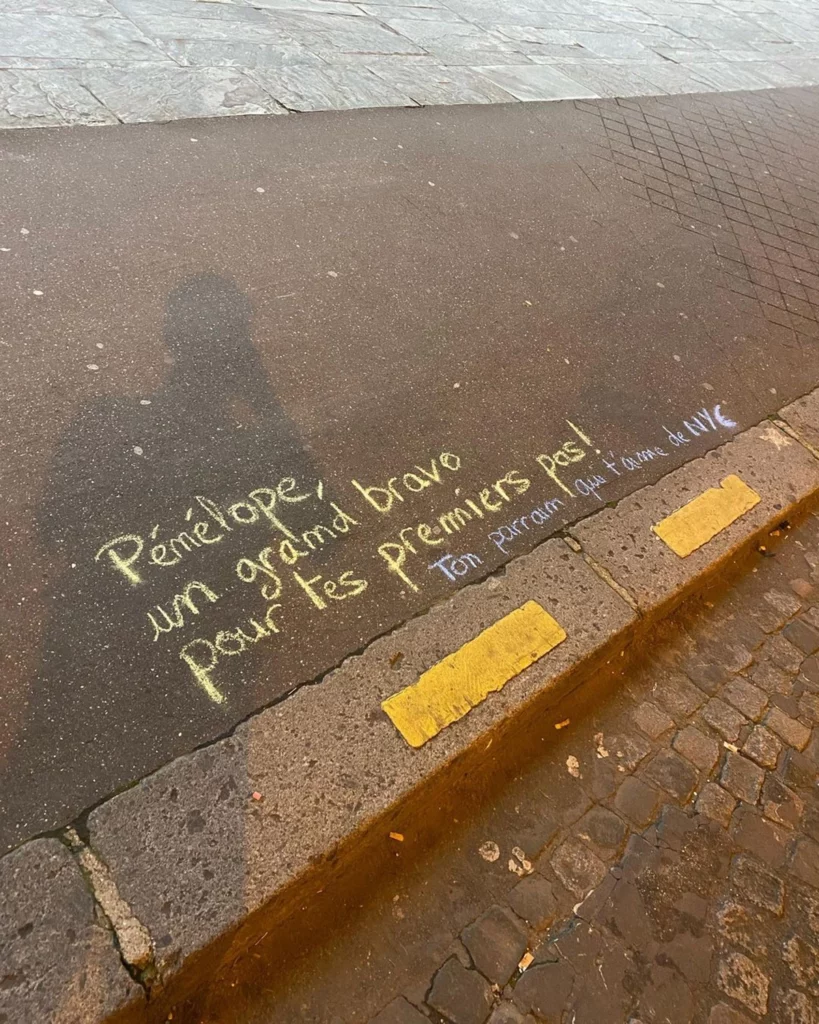 Pénélope,
un grand bravo
pour tes premiers pas!
Ton parrain qui t'aime de NYC